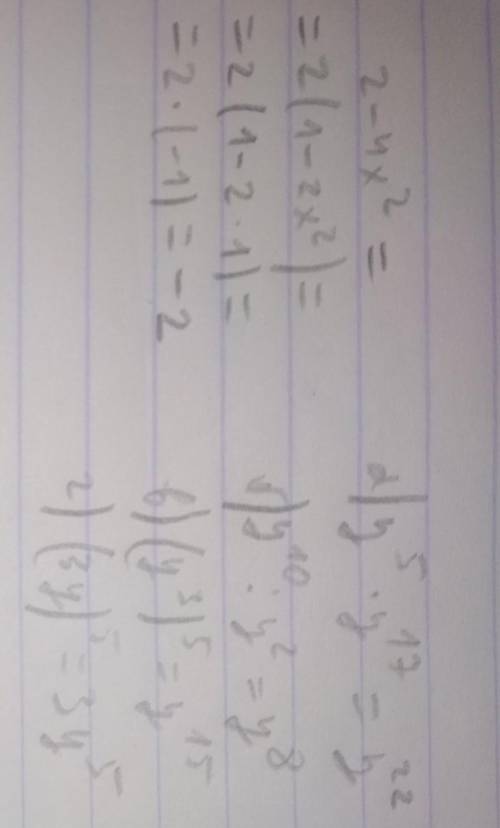 2-4x² =
= 2(1-2x²) =
= 2(1-2·1) =
= 2·(-1) = -2
а) y⁵ · y¹⁷ = y²²
б) y¹⁰ : y² = y⁸
в) (y³)⁵ = y¹⁵
г) (3y)⁵ = 3y⁵